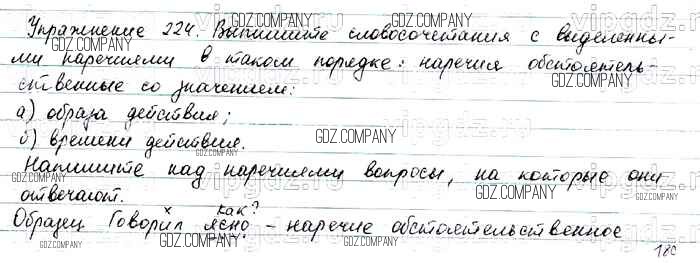 Упражнение 224. Выпишите словосочетания с выделенны-
ми наречиями в таком порядке: наречия обстоятель-
ственные со значением:
а) образа действия;
б) времени действия.
Напишите над наречиями вопросы, на которые они
отвечают.
х как?
Образец Говорил ясно – наречие обстоятельственное
180
GDZ.COMPANY
vipgdz.ru